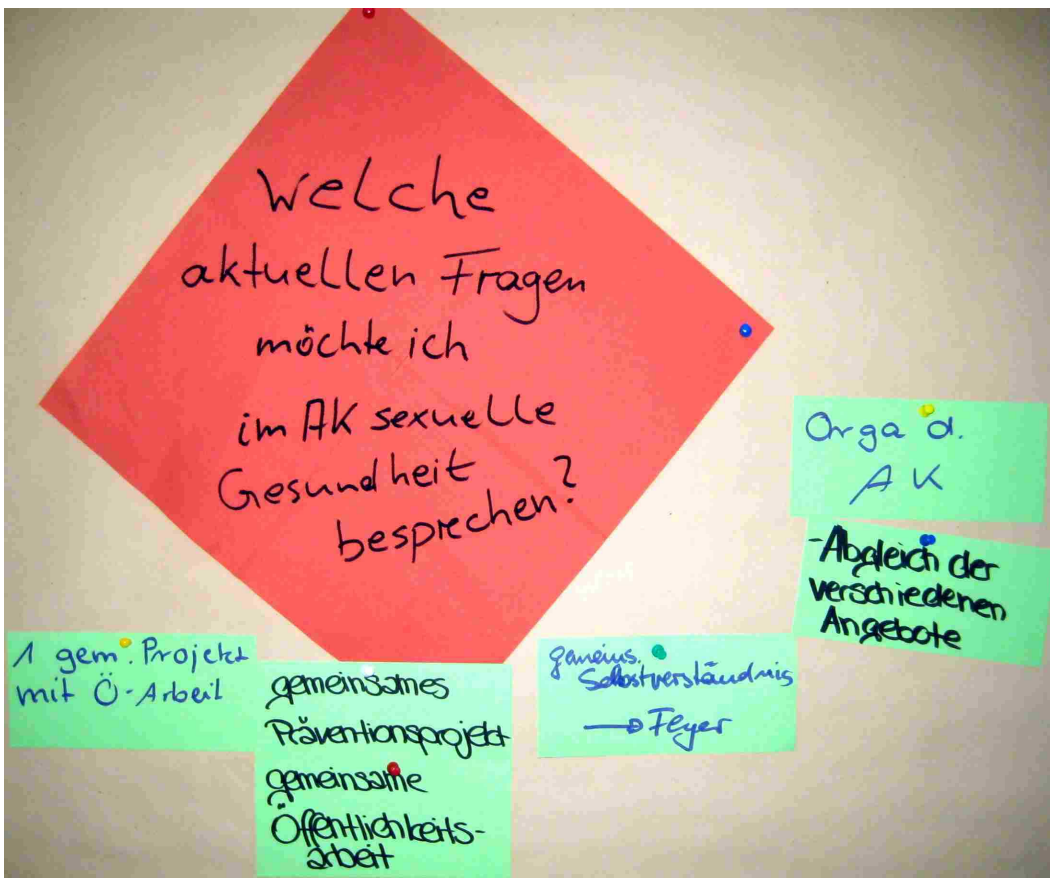 Welche
aktuellen Fragen
möchte ich
im AK sexuelle
Gesundheit
besprechen?
Orga d.
AK
-Abgleich der
verschiedenen
Angebote
1 gem. Projekt
mit Ö-Arbeit
gemeinsames
Präventionsprojekt
gemeinsame
Öffentlichkeits-
arbeit
gemeins.
Selbstverständnis
→ Flyer